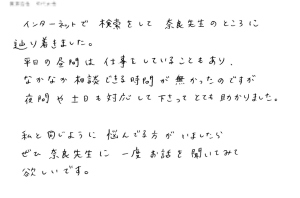 インターネットで 検索をして 奈良先生のところに
辿り着きました。
平日の昼間は仕事をしていることもあり、
なかなか相談できる時間が無かったのですが
夜間や土日も対応して下さってとても助かりました。
私と同じように悩んでる方がいましたら
ぜひ 奈良先生に一度お話を聞いてみて
欲しいです。